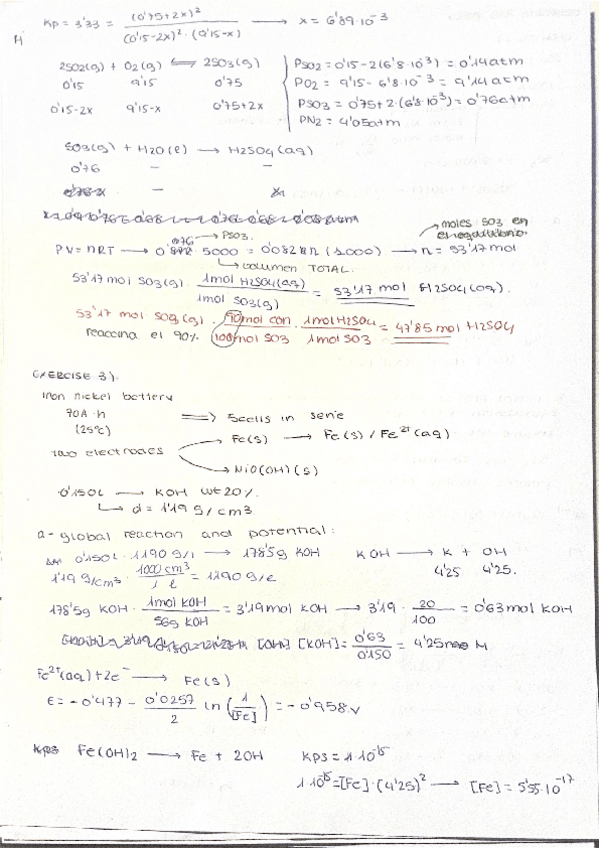 Kp = 3'33 = (0'75+2x)² / (0'15-2x)² · (9'15-x) → x = 6'89·10⁻³
2SO2(g) + O2(g) ⇌ 2SO3(g)
0'15 9'15 0'75
0'15-2x 9'15-x 0'75+2x
PSO2 = 0'15-2(6'8·10⁻³) = 0'14atm
PO2 = 9'15-6'8·10⁻³ = 9'14atm
PSO3 = 0'75+2·(6'8·10⁻³) = 0'76atm
PN2 = 4'05atm
SO3(g) + H2O(l) → H2SO4(aq)
0'76 – –
–
moles SO3 en el equilibrio.
0'76 → PSO3.
PV = nRT → 0' · 5000 = 0'082 n (1000) → n = 53'17 mol
↳ volumen TOTAL.
53'17 mol SO3(g) · 1mol H2SO4(aq) / 1mol SO3(g) = 53'17 mol H2SO4(aq).
53'17 mol SO3(g) · 90mol con / 100mol SO3 · 1mol H2SO4 / 1mol SO3 = 47'85 mol H2SO4
reacciona el 90%
EXERCISE 3).
Iron nickel battery
70A·h
(25ºC)
⇒ 5cells in serie
two electrodes
→ Fe(s) → Fe(s) / Fe²⁺(aq)
→ NiO(OH)(s)
0'150L → KOH wt20%.
↳ d = 1'19 g/cm3
a- global reaction and potential:
0'150L · 1190 g/l → 178'5g KOH KOH → K + OH
1'19 g/cm³ · 1000cm³ / 1 l = 1190 g/l 4'25 4'25.
178'5g KOH · 1mol KOH / 56g KOH = 3'19mol KOH → 3'19 · 20/100 = 0'63mol KOH
[OH] [KOH] = 0'63 / 0'150 = 4'25 M
Fe²⁺(aq) + 2e⁻ → Fe(s)
E = -0'477 - 0'0257/2 ln (1/[Fe]) = -0'958v
Kps Fe(OH)2 → Fe + 2OH KPS = 1·10⁻¹⁵
1·10⁻¹⁵ = [Fe]·(4'25)² → [Fe] = 5'55·10⁻¹⁷